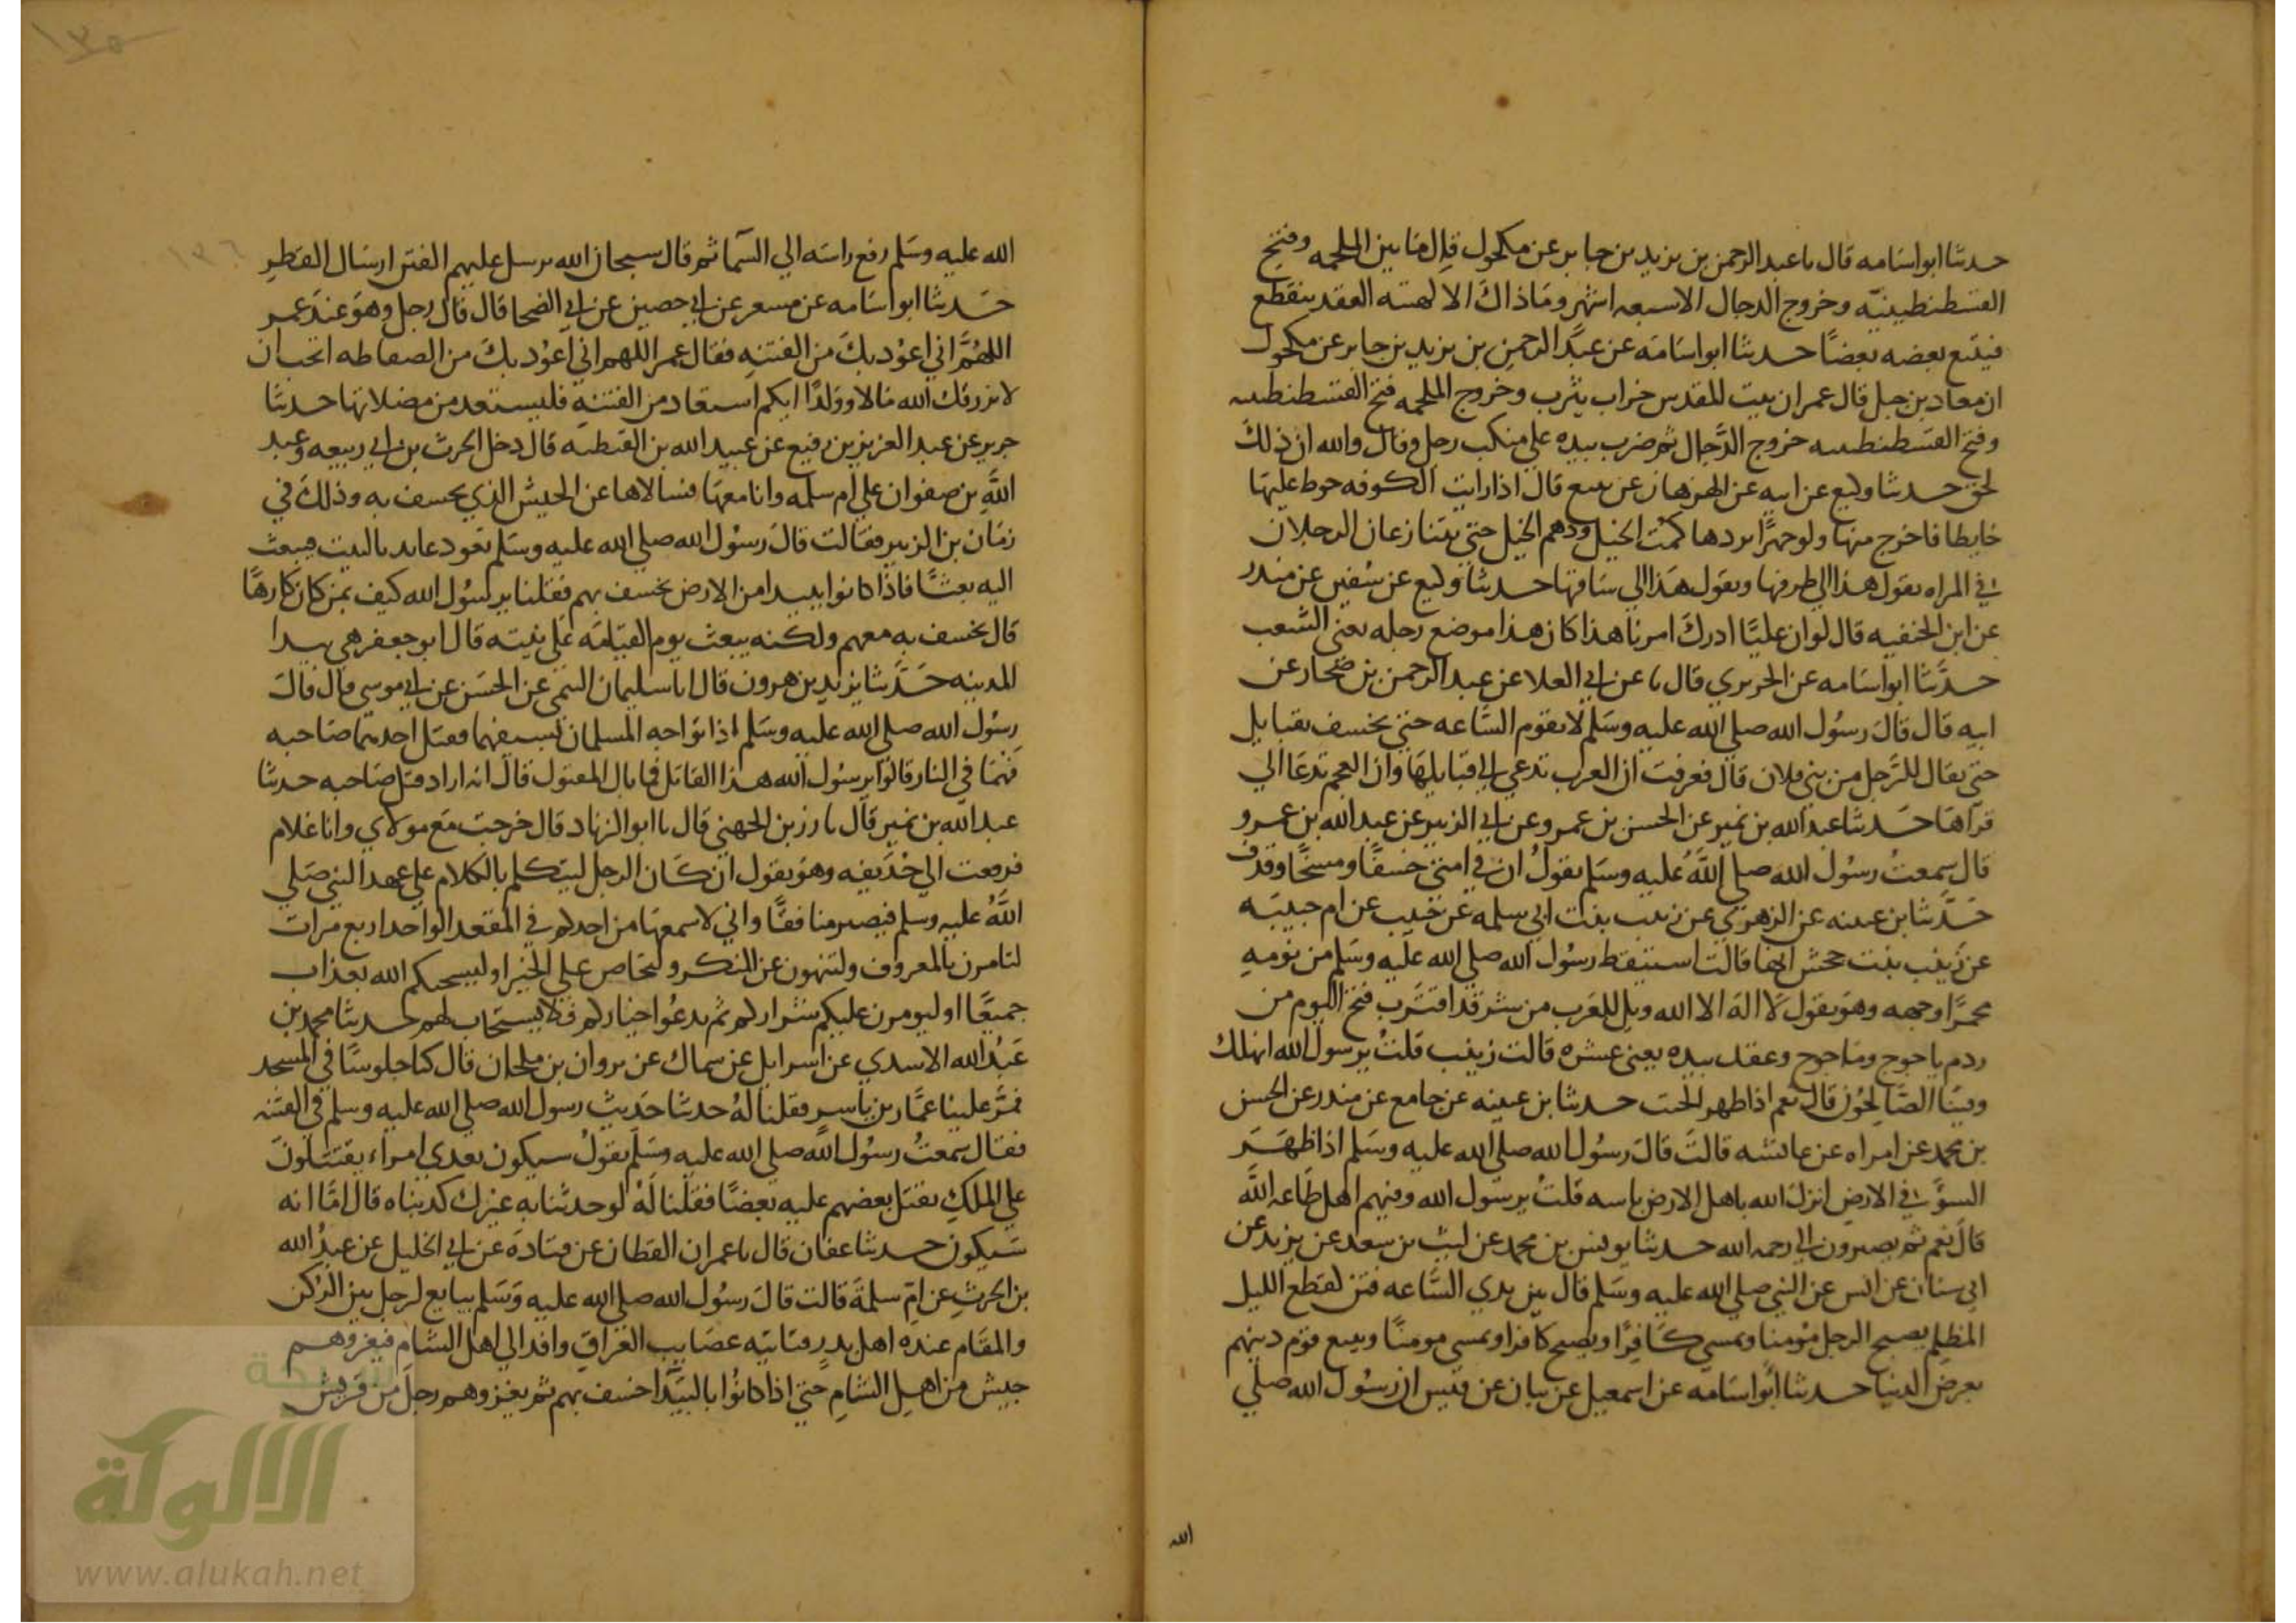 حدثنا ابو اسامه قال ما عبد الرحمن بن يزيد بن جابر عن مكحول قال ما بين الملحمه وفتح
القسطنطينيه وخروج الدجال الا سبعه اشهر وما ذاك الا لهيئه العقد ينقطع
فيتبع بعضه بعضًا حدثنا ابو اسامه عن عبد الرحمن بن يزيد بن جابر عن مكحول
ان معاد بن جبل قال عمران بيت المقدس خراب يثرب وخروج الملحمه فتح القسطنطينيه
وفتح القسطنطينيه خروج الدجال ثم ضرب بيده علي منكب رجل وقال والله ان ذلك
لحق حدثنا وكيع عن ابيه عن الهزهاز عن يثيع قال اذا رايت الكوفه حوط عليها
حايطا فاخرج منها ولو حبوًا يردها كمت الخيل ودهم الخيل حتي يتنازعان الرجلان
في المراه يقول هذا لي طرفها ويقول هذا لي ساقها حدثنا وكيع عن سفين عن منذر
عن ابن الحنفيه قال لو ان عليًا ادرك امرنا هذا كان هذا موضع رحله يعني الشعب
حدثنا ابو اسامه عن الجريري قال ما عن ابي العلا عن عبد الرحمن بن صحار عن
ابيه قال قال رسول الله صلي الله عليه وسلم لا تقوم الساعه حتي يخسف بقبايل
حتي يقال للرجل من بني فلان قال فعرفت ان العرب تدعي الي قبايلها وان العجم تدعا الي
قراها حدثنا عبد الله بن نمير عن الحسن بن عمرو عن ابي الزبير عن عبد الله بن عمرو
قال سمعت رسول الله صلي الله عليه وسلم يقول ان في امتي خسفًا ومسخًا وقذف
حدثنا بن عيينه عن الزهري عن زينب بنت ابي سلمه عن حبيب عن ام حبيبه
عن زينب بنت جحش انها قالت استيقظ رسول الله صلي الله عليه وسلم من نومه
محمرًا وجهه وهو يقول لا اله الا الله ويل للعرب من شر قد اقترب فتح اليوم من
ردم ياجوج وماجوج وعقد بيده يعني عشره قالت زينب قلت يرسول الله انهلك
وفينا الصالحون قال نعم اذا ظهر الخبث حدثنا بن عيينه عن جامع عن منذر عن الحسن
بن محمد عن امراه عن عائشه قالت قال رسول الله صلي الله عليه وسلم اذا ظهر
السؤ في الارض انزل الله باهل الارض باسه قلت يرسول الله وفيهم اهل طاعه الله
قال نعم ثم يصيرون الي رحمه الله حدثنا يونس بن محمد عن ليث بن سعد عن يزيد عن
ابي سنان عن انس عن النبي صلي الله عليه وسلم قال بين يدي الساعه فتن كقطع الليل
المظلم يصبح الرجل مؤمنا ويمسي كافرًا ويصبح كافرا ويمسي مومنًا ويبيع قوم دينهم
بعرض الدنيا حدثنا ابو اسامه عن اسمعيل عن بيان عن قيس ان رسول الله صلي
الله
١٣٥
١٣٦
الله عليه وسلم رفع راسه الي السما ثم قال سبحان الله يرسل عليهم الفتن ارسال القطر
حدثنا ابو اسامه عن مسعر عن ابي حصين عن ابي الضحا قال قال رجل وهو عند عمر
اللهم اني اعوذ بك من الفتنه فقال عمر اللهم اني اعوذ بك من الضفاطه اتحب ان
لا يرزقك الله مالا وولدًا ايكم استعاد من الفتنه فليستعد من مضلاتها حدثنا
جرير عن عبد العزيز بن رفيع عن عبيد الله بن القبطيه قال دخل الحرث بن ابي ربيعه وعبد
الله بن صفوان علي ام سلمه وانا معهما فسالاها عن الجيش الذي يخسف به وذلك في
زمان بن الزبير فقالت قال رسول الله صلي الله عليه وسلم يعود عايد بالبيت فيبعث
اليه بعثًا فاذا كانوا ببيدا من الارض يخسف بهم فقلنا يرسول الله كيف بمن كان كارهًا
قال يخسف به معهم ولكنه يبعث يوم القيامه علي نيته قال ابو جعفر هي بيدا
المدينه حدثنا يزيد بن هرون قال انا سليمان التيمي عن الحسن عن ابي موسي قال قال
رسول الله صلي الله عليه وسلم اذا تواجه المسلمان بسيفيهما فقتل احدهما صاحبه
فهما في النار قالوا يرسول الله هذا القاتل فما بال المقتول قال انه اراد قتل صاحبه حدثنا
عبد الله بن نمير قال ما رزين الجهني قال ما ابو الزناد قال خرجت مع مولاي وانا غلام
فدفعت الي حذيفه وهو يقول ان كان الرجل ليتكلم بالكلام علي عهد النبي صلي
الله عليه وسلم فيصير منافقًا واني لاسمعها من احدكم في المقعد الواحد اربع مرات
لتامرن بالمعروف ولتنهون عن المنكر ولتحاضن علي الخير او ليسحتكم الله بعذاب
جميعًا او ليومرن عليكم شراركم ثم يدعوا خياركم فلا يستجاب لهم حدثنا محمد بن
عبد الله الاسدي عن اسرايل عن سماك عن ثروان بن ملحان قال كنا جلوسًا في المسجد
فمر علينا عمار بن ياسر فقلنا له حدثنا حديث رسول الله صلي الله عليه وسلم في الفتنه
فقال سمعت رسول الله صلي الله عليه وسلم يقول سيكون بعدي امراء يقتتلون
علي الملك يقتل بعضهم عليه بعضًا فقلنا له لو حدثنا به غيرك كذبناه قال اما انه
سيكون حدثنا عفان قال ما عمران القطان عن قتاده عن ابي الخليل عن عبد الله
بن الحرث عن ام سلمة قالت قال رسول الله صلي الله عليه وسلم يبايع لرجل بين الركن
والمقام عده اهل بدر فتاتيه عصايب العراق وافدا لي اهل الشام فيغزوهم
جيش من اهل الشام حتي اذا كانوا بالبيدا خسف بهم ثم يغزوهم رجل من قريش
شبكة
الألوكة
www.alukah.net